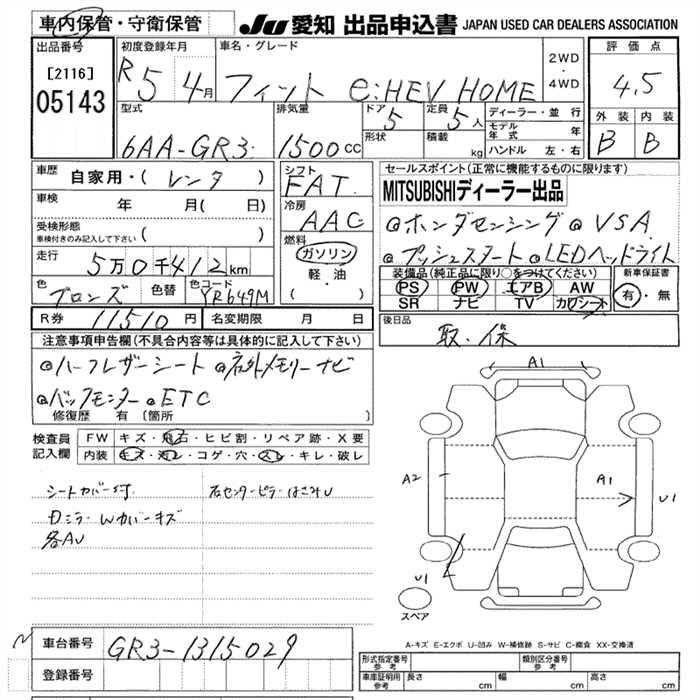 車内保管・守衛保管
JU 愛知 出品申込書 JAPAN USED CAR DEALERS ASSOCIATION
出品番号
[2116]
05143
初度登録年月
R5 4月
車名・グレード
フィット e:HEV HOME
2WD
・
4WD
評価点
4.5
型式
6AA-GR3
排気量
1500cc
ドア
5
形状
定員
5人
積載 kg
ディーラー・並行
モデル年式 年
ハンドル 左・右
外装 内装
B B
車歴
自家用・( レンタ )
車検 年 月( 日)
受検形態
車検付きのみ記入して下さい ( )
走行
5万0千412km
色
ブロンズ
色替
色コード
YR649M
シフト
FAT
冷房
AAC
燃料
ガソリン
軽油
( )
セールスポイント(正常に機能するものに限ります)
MITSUBISHIディーラー出品
@ホンダセンシング @VSA
@プッシュスタート @LEDヘッドライト
装備品(純正品に限り○をつけてください)
PS PW エアB AW
SR ナビ TV カワシート
新車保証書
有・無
R券 11510円
名変期限 月 日
後日品
取・保
注意事項申告欄(不具合内容等は具体的に記入して下さい)
@ハーフレザーシート @社外メモリーナビ
@バックモニター @ETC
修復歴 有 [箇所
検査員
記入欄
FW キズ・飛石・ヒビ割・リペア跡・X要
内装 キズ・汚レ・コゲ・穴・スレ・キレ・破レ
シートカバー付
右センターピラーはさみU
Dミラー Wカバーキズ
各AU
A1
A2
A1
U1
U1
スペア
A-キズ E-エクボ U-凹み W-補修跡 S-サビ C-腐食 XX-交換済
車台番号
GR3-1315029
登録番号
形式指定番号
参考
類別区分番号
参考
車庫証明用
参考
長さ cm
幅 cm
高さ cm